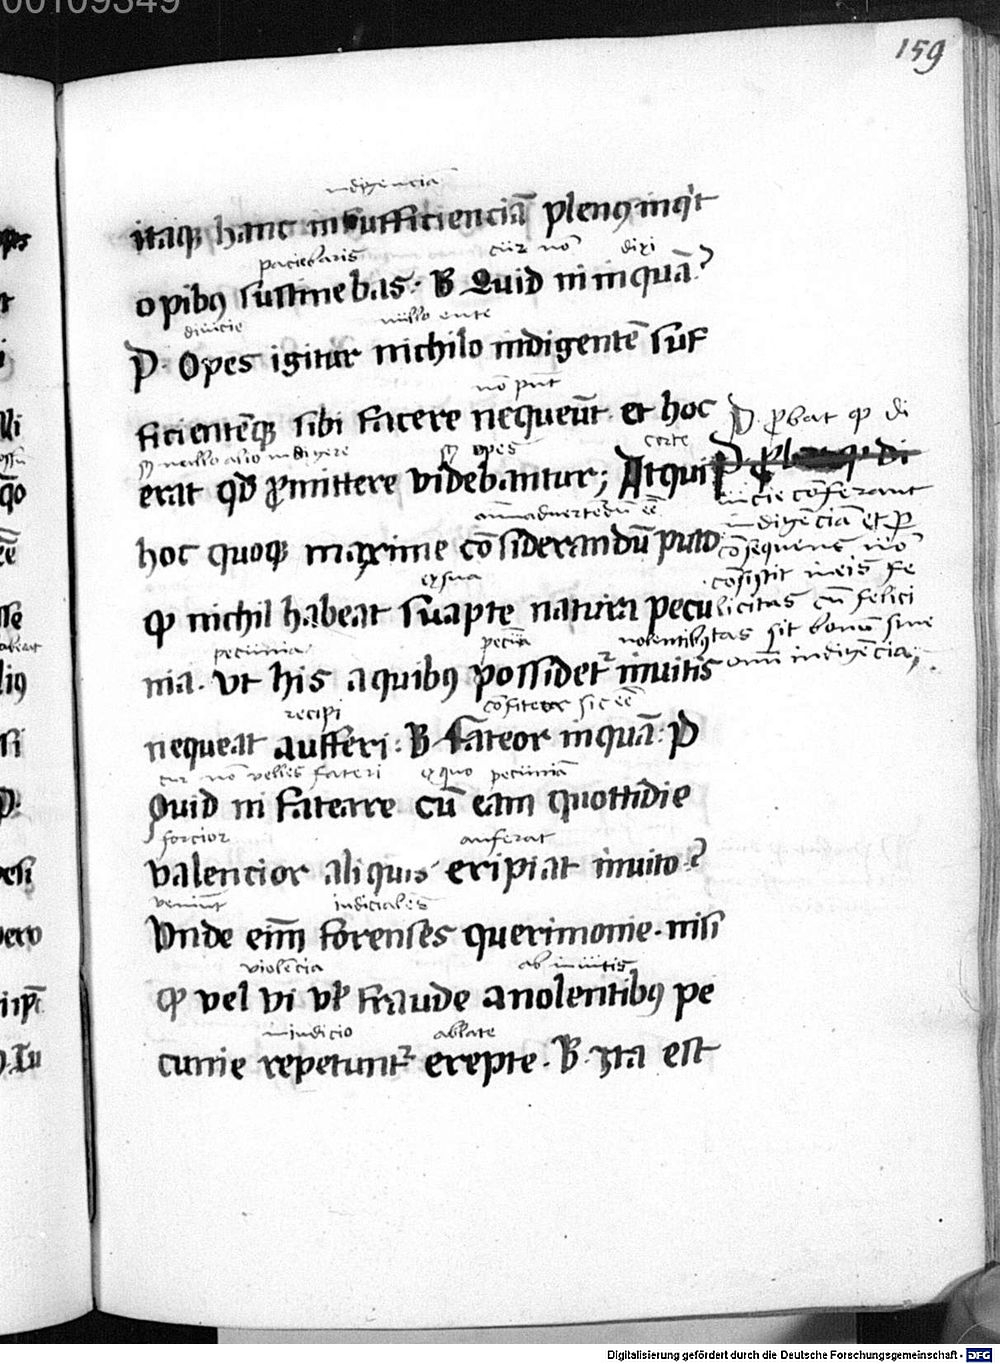 00109349
159
indigenciā
itaqꝫ hanc insufficienciā plenꝰ inqͥt
paciebaris cūr nō dixi
opibꝰ sustinebas. B Quid ni inquā?
diuicie nullo ente
P. Opes igitur nichilo indigentē suf
nō pn̄t
ficientēqꝫ sibi facere nequeūt. et hoc
nullo alio indigere opes certe
erat qd̄ ꝓmittere videbantur; Atqui
aīaduertēdū eē̄
hoc quoqꝫ maxime cōsiderandū puto
ex sua
ꝙ nichil habeat suapte natura pecu
pecunia pecūia nolentibꝰ
nia. vt his a quibꝰ possidetᷣ inuitis
recipi cōfiteor sic eē̄
nequeat aufferi: B fateor inquā: P
cur nō velles fateri ex quo pecuniā
Quid ni fateare cū eam quottidie
forcior auferat
valencior aliquis eripiat inuito?
veniūt iudiciales
Vnde eni̅ forenses querimonie. nisi
violēcia ab inuitis
ꝙ vel vi vł fraude a nolentibꝰ pe
in iudicio ablate
cunie repetuntᷣ erepte. B. Ita est
P. ꝓbat ꝙ di
uicie cōferant
indigēciā et ꝑ
cōsequens nō
cōsistit in eis fe
licitas cū felici
tas sit bonū sine
omni indigēcia;
Digitalisierung gefördert durch die Deutsche Forschungsgemeinschaft - DFG